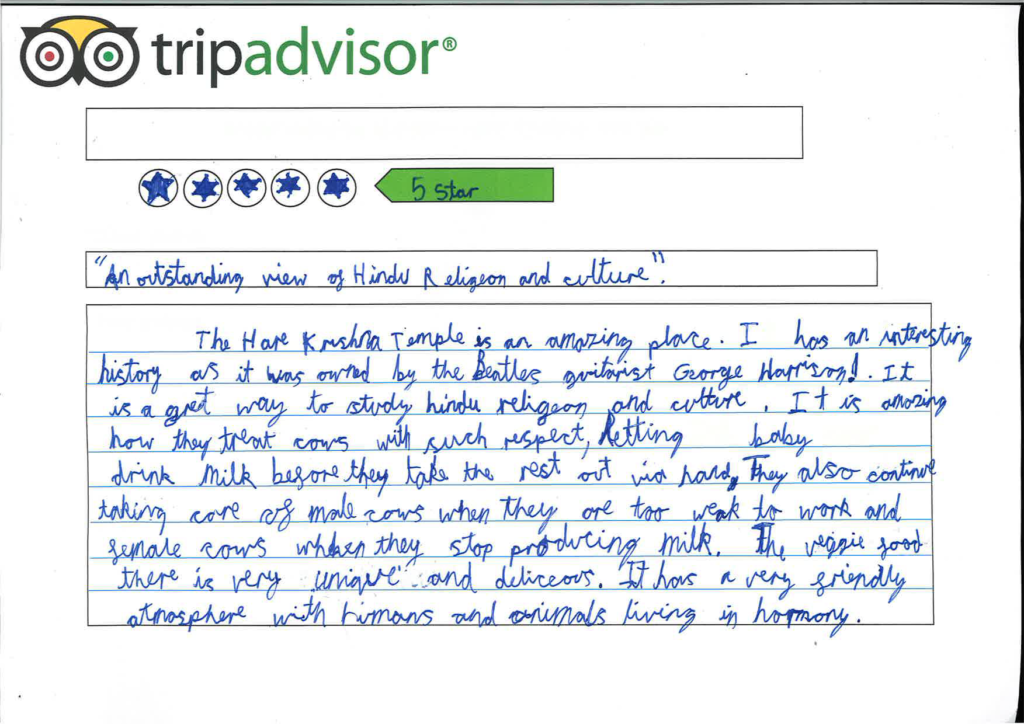 tripadvisor®
5 star
"An outstanding view of Hindu Religeon and culture".
The Hare Krishna Temple is an amazing place. I has an interesting
history as it was owned by the Beatles guitarist George Harrison!. It
is a gret way to study hindu religeon and culture. It is amazing
how they treat cows with such respect, letting baby
drink milk before they take the rest out via hand, They also continue
taking care of male cows when they are too weak to work and
female cows when they stop producing milk. The veggie food
there is very unique and deliceous. It has a very friendly
atmosphere with humans and animals living in harmony.